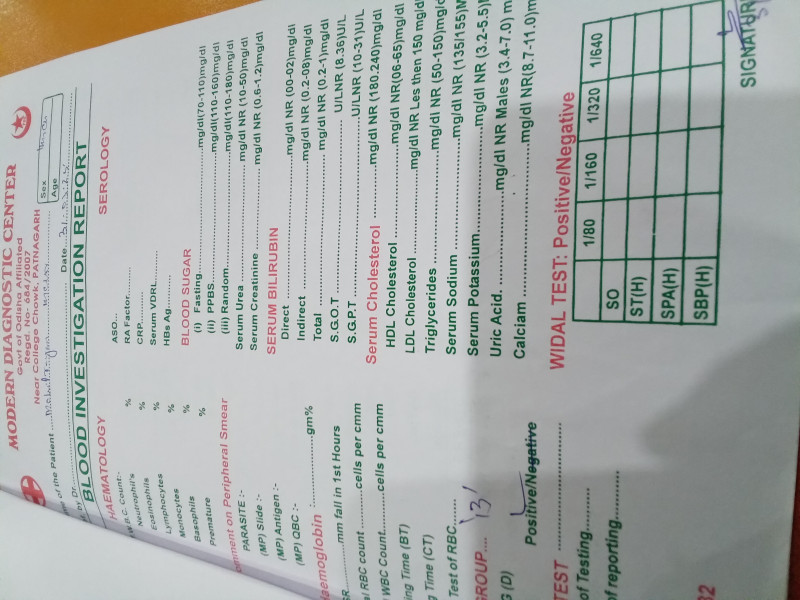 MODERN DIAGNOSTIC CENTER
Govt of Odisha Affiliated
Regd. No - 684/2007
Near College Chowk, PATNAGARH
of the Patient
Sex
Age
by Dr. Date 31
BLOOD INVESTIGATION REPORT
HAEMATOLOGY
W.B.C. Count:-
Neutrophil's %
Eosinophils %
Lymphocytes %
Monocytes %
Basophils %
Premature %
Comment on Peripheral Smear
PARASITE :-
(MP) Slide :-
(MP) Antigen :-
(MP) QBC :-
Haemoglobin :- gm%
mm fall in 1st Hours
RBC count cells per cmm
WBC Count cells per cmm
ing Time (BT)
g Time (CT)
Test of RBC
GROUP 'B'
G (D) Positive/Negative
TEST
of Testing
of reporting
32
SEROLOGY
ASO
RA Factor
CRP
Serum VDRL
HBs Ag
BLOOD SUGAR
(i) Fasting mg/dl(70-110)mg/dl
(ii) PPBS mg/dl(110-160)mg/dl
(iii) Random mg/dl(110-180)mg/dl
Serum Urea mg/dl NR (10-50)mg/dl
Serum Creatinine mg/dl NR (0.6-1.2)mg/dl
SERUM BILIRUBIN
Direct mg/dl NR (00-02)mg/dl
Indirect mg/dl NR (0.2-08)mg/dl
Total mg/dl NR (0.2-1)mg/dl
S.G.O.T U/LNR (8.36)U/L
S.G.P.T U/LNR (10-31)U/L
Serum Cholesterol mg/dl NR (180.240)mg/dl
HDL Cholesterol mg/dl NR(06-65)mg/dl
LDL Cholesterol mg/dl NR Les then 150 mg/dl
Triglycerides mg/dl NR (50-150)mg/d
Serum Sodium mg/dl NR (135/155)M
Serum Potassium mg/dl NR (3.2-5.5)
Uric Acid mg/dl NR Males (3.4-7.0) m
Calciam mg/dl NR(8.7-11.0)m
WIDAL TEST: Positive/Negative
1/80 1/160 1/320 1/640
SO
ST(H)
SPA(H)
SBP(H)
SIGNATUR